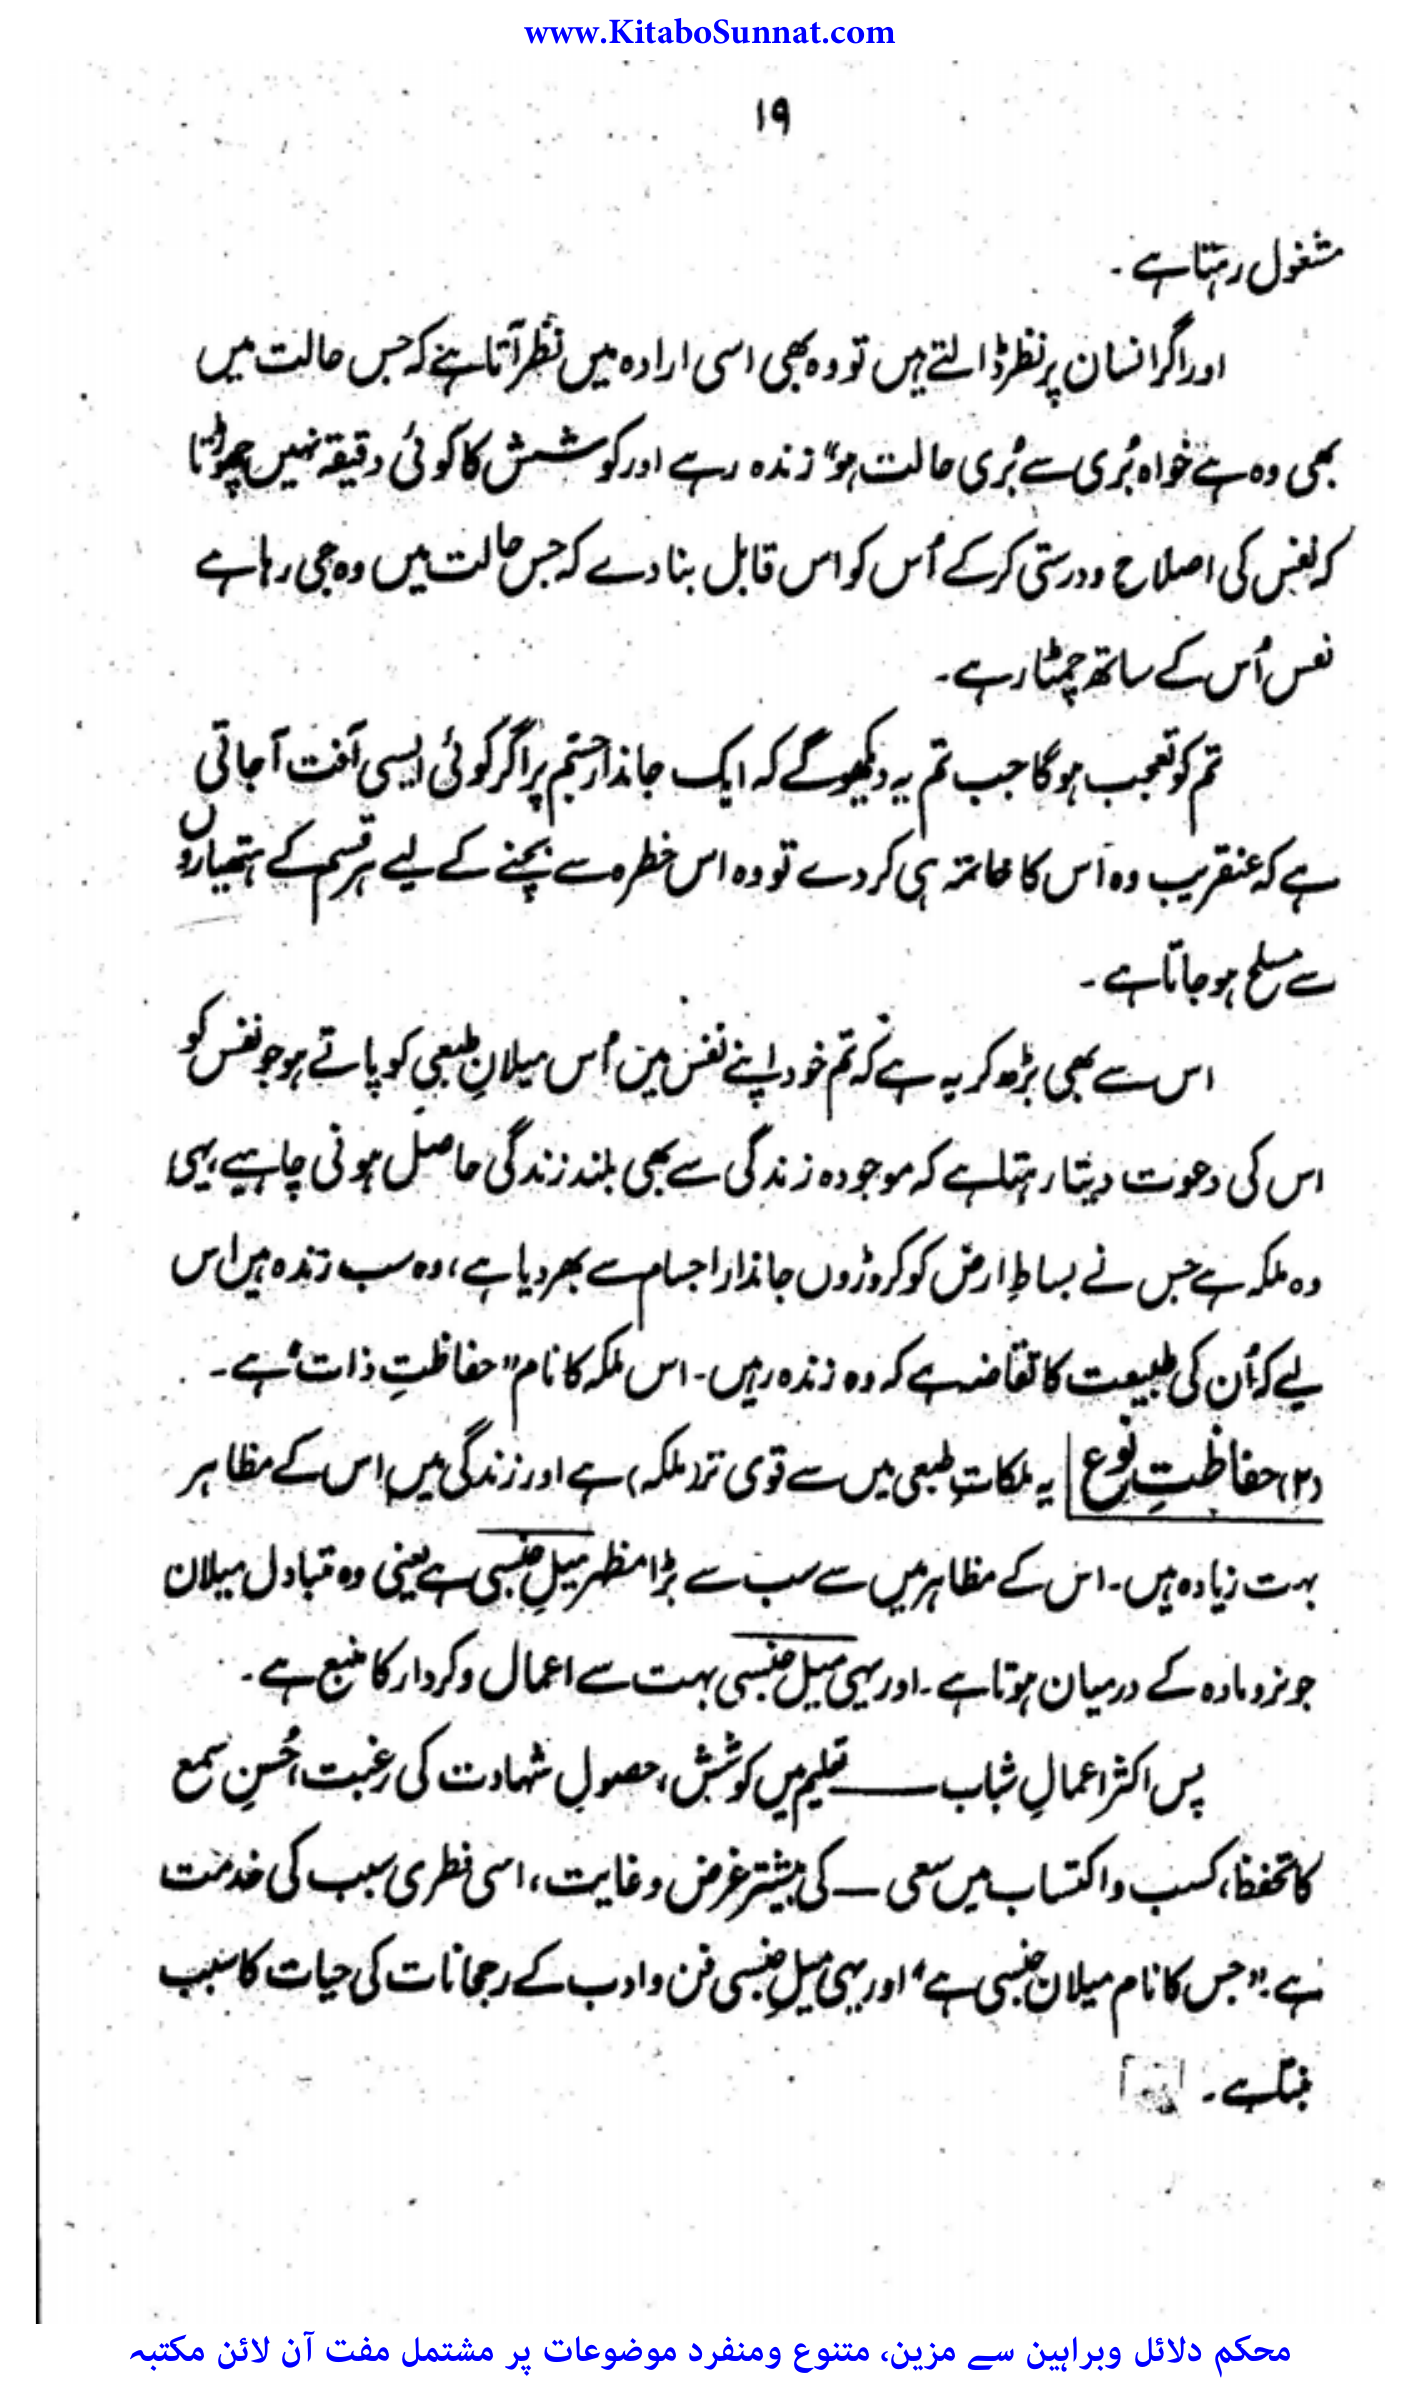 www.KitaboSunnat.com
۱۹
مشغول رہتا ہے۔
اور اگر انسان پر نظر ڈالتے ہیں تو وہ بھی اسی ارادہ میں نظر آتا ہے کہ جس حالت میں
بھی وہ ہے خواہ بُری سے بُری حالت ہو" زندہ رہے اور کوشش کا کوئی دقیقہ نہیں چھوڑتا
کہ نفس کی اصلاح و درستی کر کے اُس کو اس قابل بنا دے کہ جس حالت میں وہ جی رہا ہے
نفس اُس کے ساتھ چمٹا رہے۔
تم کو تعجب ہو گا جب تم یہ دیکھو گے کہ ایک جاندار جسم پر اگر کوئی ایسی آفت آ جاتی
ہے کہ عنقریب وہ اُس کا خاتمہ ہی کر دے تو وہ اس خطرہ سے بچنے کے لیے ہر قسم کے ہتھیاروں
سے مسلح ہو جاتا ہے۔
اس سے بھی بڑھ کر یہ ہے کہ تم خود اپنے نفس میں اُس میلانِ طبعی کو پاتے ہو جو نفس کو
اس کی دعوت دیتا رہتا ہے کہ موجودہ زندگی سے بھی بلند زندگی حاصل ہونی چاہیے، یہی
وہ ملکہ ہے جس نے بساطِ ارض کو کروڑوں جاندار اجسام سے بھر دیا ہے، وہ سب زندہ ہیں اس
لیے کہ اُن کی طبیعت کا تقاضہ ہے کہ وہ زندہ رہیں۔ اس ملکہ کا نام "حفاظتِ ذات" ہے۔
(۲) حفاظتِ نوع یہ ملکاتِ طبعی میں سے قوی تر (ملکہ) ہے اور زندگی میں اس کے مظاہر
بہت زیادہ ہیں۔ اس کے مظاہر میں سے سب سے بڑا مظہر میلِ جنسی ہے یعنی وہ تبادل میلان
جو نر و مادہ کے درمیان ہوتا ہے۔ اور یہی میل جنسی بہت سے اعمال و کردار کا منبع ہے۔
پس اکثر اعمالِ شباب ـــ تعلیم میں کوشش، حصولِ شہادت کی رغبت، حُسنِ سمع
کا تحفظ، کسب و اکتساب میں سعی ـــ کی بیشتر غرض و غایت، اسی فطری سبب کی خدمت
ہے، "جس کا نام میلان جنسی ہے" اور یہی میلِ جنسی فن و ادب کے رجحانات کی حیات کا سبب
بنتا ہے۔
محکم دلائل وبراہین سے مزین، متنوع ومنفرد موضوعات پر مشتمل مفت آن لائن مکتبہ